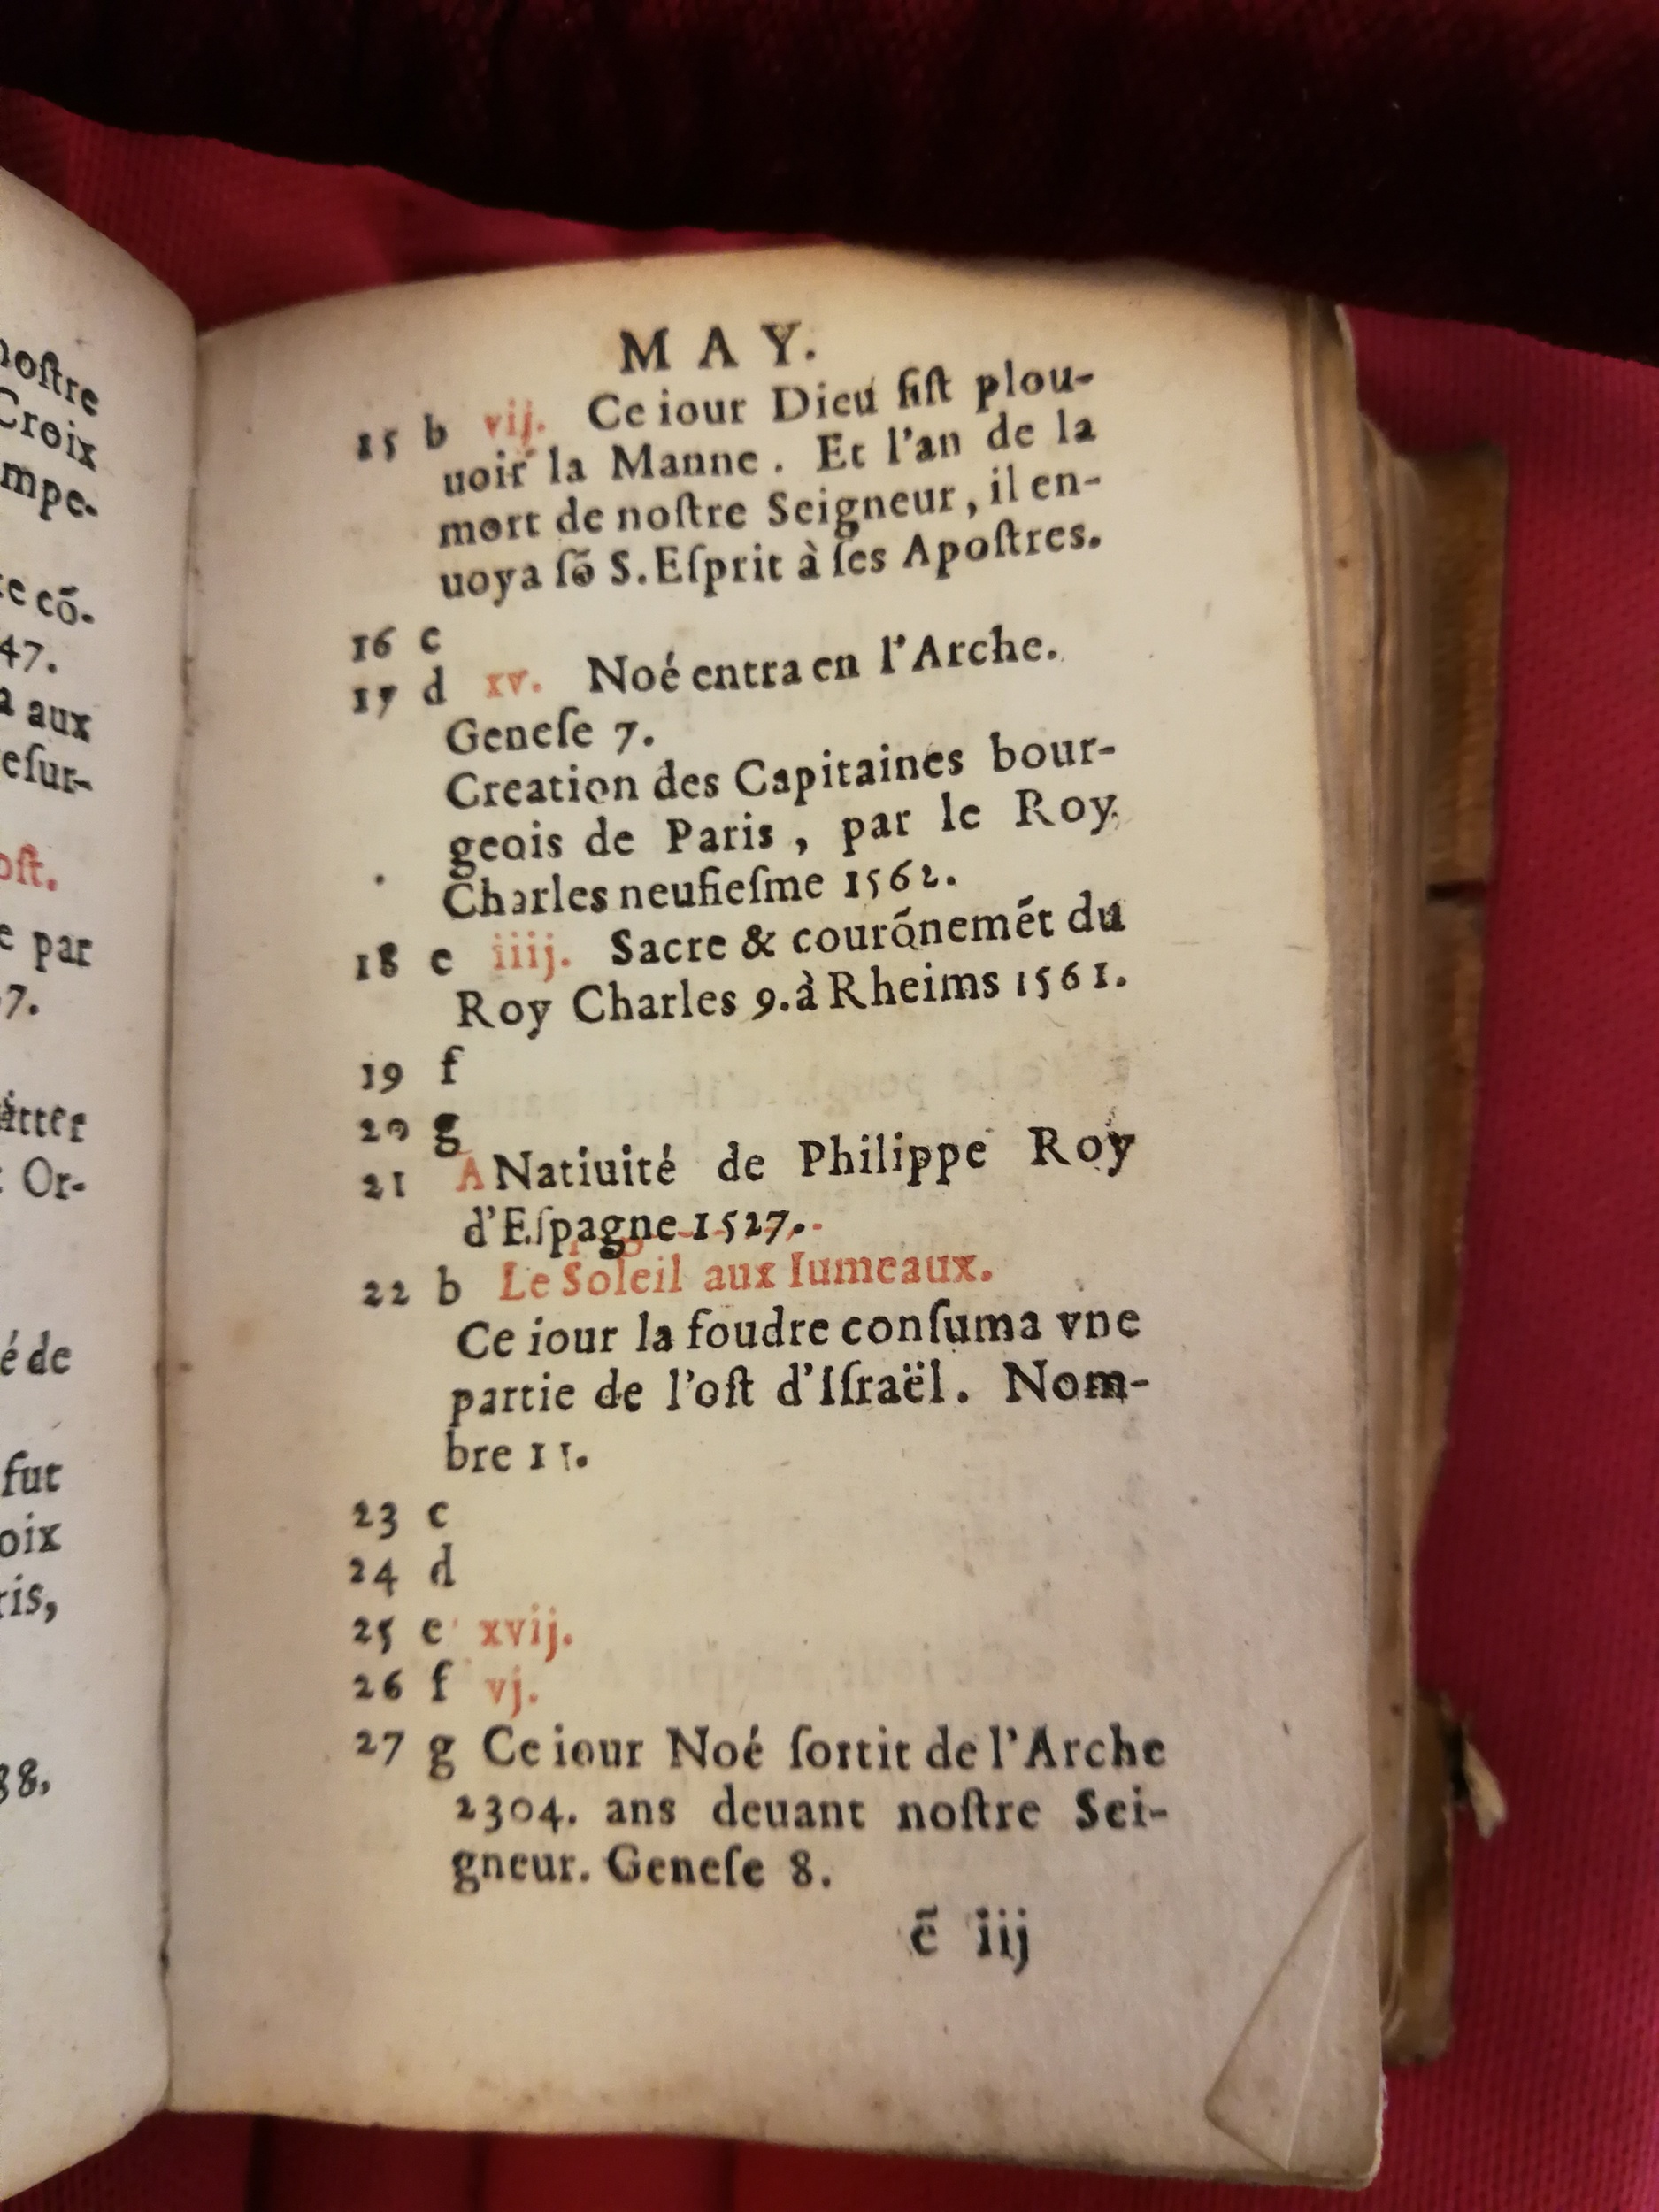 noſtre
Croix
mpe-
te cõ-
47.
a aux
eſur-
oſt.
e par
7.
Or-
é de
fut
oix
ris,
88.
MAY.
15 b vij. Ce iour Dieu fiſt plou-
uoir la Manne. Et l'an de la
mort de noſtre Seigneur, il en-
uoya ſõ S. Eſprit à ſes Apoſtres.
16 c
17 d xv. Noé entra en l'Arche.
Geneſe 7.
Creation des Capitaines bour-
geois de Paris, par le Roy
Charles neufieſme 1562.
18 e iiij. Sacre & courõnemẽt du
Roy Charles 9. à Rheims 1561.
19 f
20 g
21 A Natiuité de Philippe Roy
d'Eſpagne 1527.
22 b Le Soleil aux Iumeaux.
Ce iour la foudre conſuma vne
partie de l'oſt d'Iſraël. Nom-
bre 11.
23 c
24 d
25 e xvij.
26 f vj.
27 g Ce iour Noé ſortit de l'Arche
2304. ans deuant noſtre Sei-
gneur. Geneſe 8.
ẽ iij